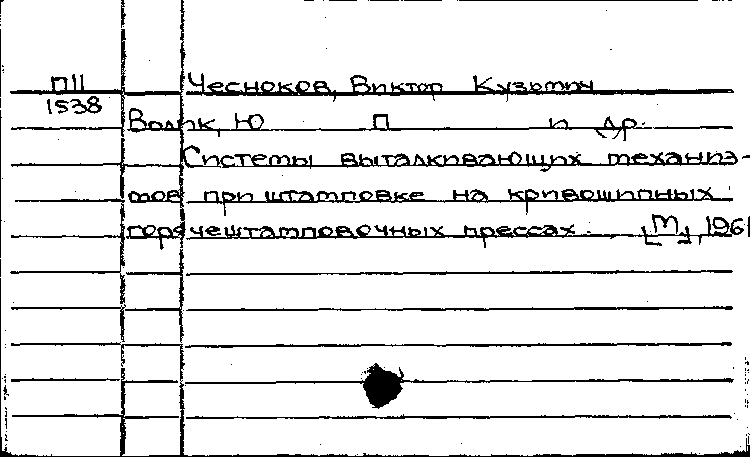 П11 Чесноков, Виктор Кузьмич
1538
Волик, Ю П и др.
Системы выталкивающих механиз-
мов при штамповке на кривошипных
горячештамповочных прессах. [М], 1961